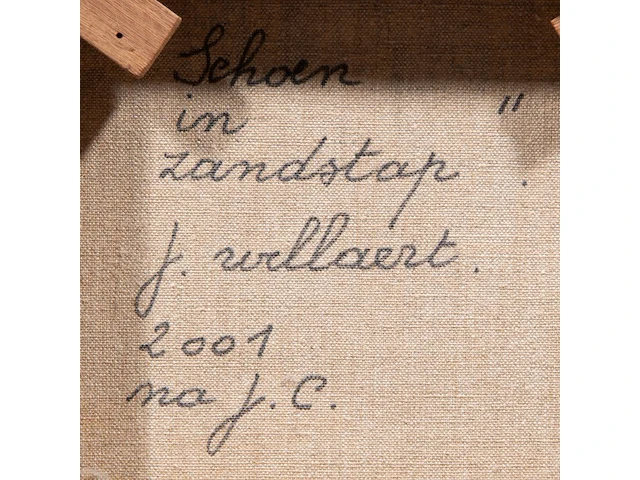 Schoen
in "
zandstap .
J. willaert.
2001
na J.C.